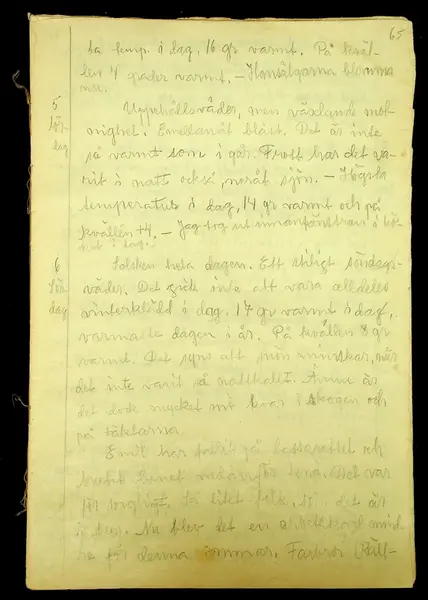 65
ta temp. i dag, 16 gr varmt. På kväl-
len 4 grader varmt. – Honsälgarna blomma
nu.
5 Uppehållsväder, men växlande mol-
Lör- nighet. Emellanåt blått. Det är inte
dag så varmt som i går. Frost har det va-
rit i natt också, noråt sjön. – Högsta
temperatur i dag, 14 gr varmt och på
kvällen +4. – Jag tog ut innanfönstren i
i dag.
6 Solsken hela dagen. Ett stiligt söndags-
Sön- väder. Det gick inte att vara alldeles
dag vinterklädd i dag. 17 gr varmt i dag,
varmaste dagen i år. På kvällen 8 gr
varmt. Det syns att snön minskar, när
det inte varit så nattkallt. Ännu är
det dock mycket snö kvar i skogen och
på täkterna.
Emil har fallit på
benet för Det var
för sorgligt, så litet folk, det är
Nu blev det en mind-
re för denna sommar. Farbror